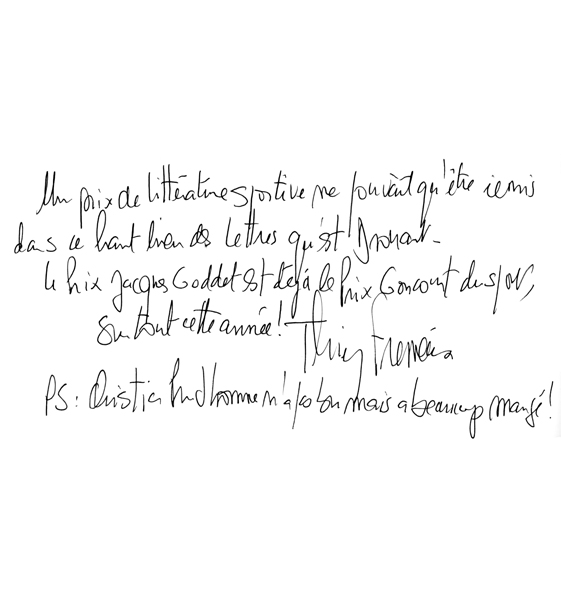 Un prix de littérature sportive ne pouvait qu'être remis
dans ce haut lieu des Lettres qu'est Drouant.
Le Prix Jacques Goddet est déjà le Prix Goncourt du sport,
surtout cette année! Thierry Frémaux
PS: Christian Prudhomme n'a pas bu mais a beaucoup mangé!